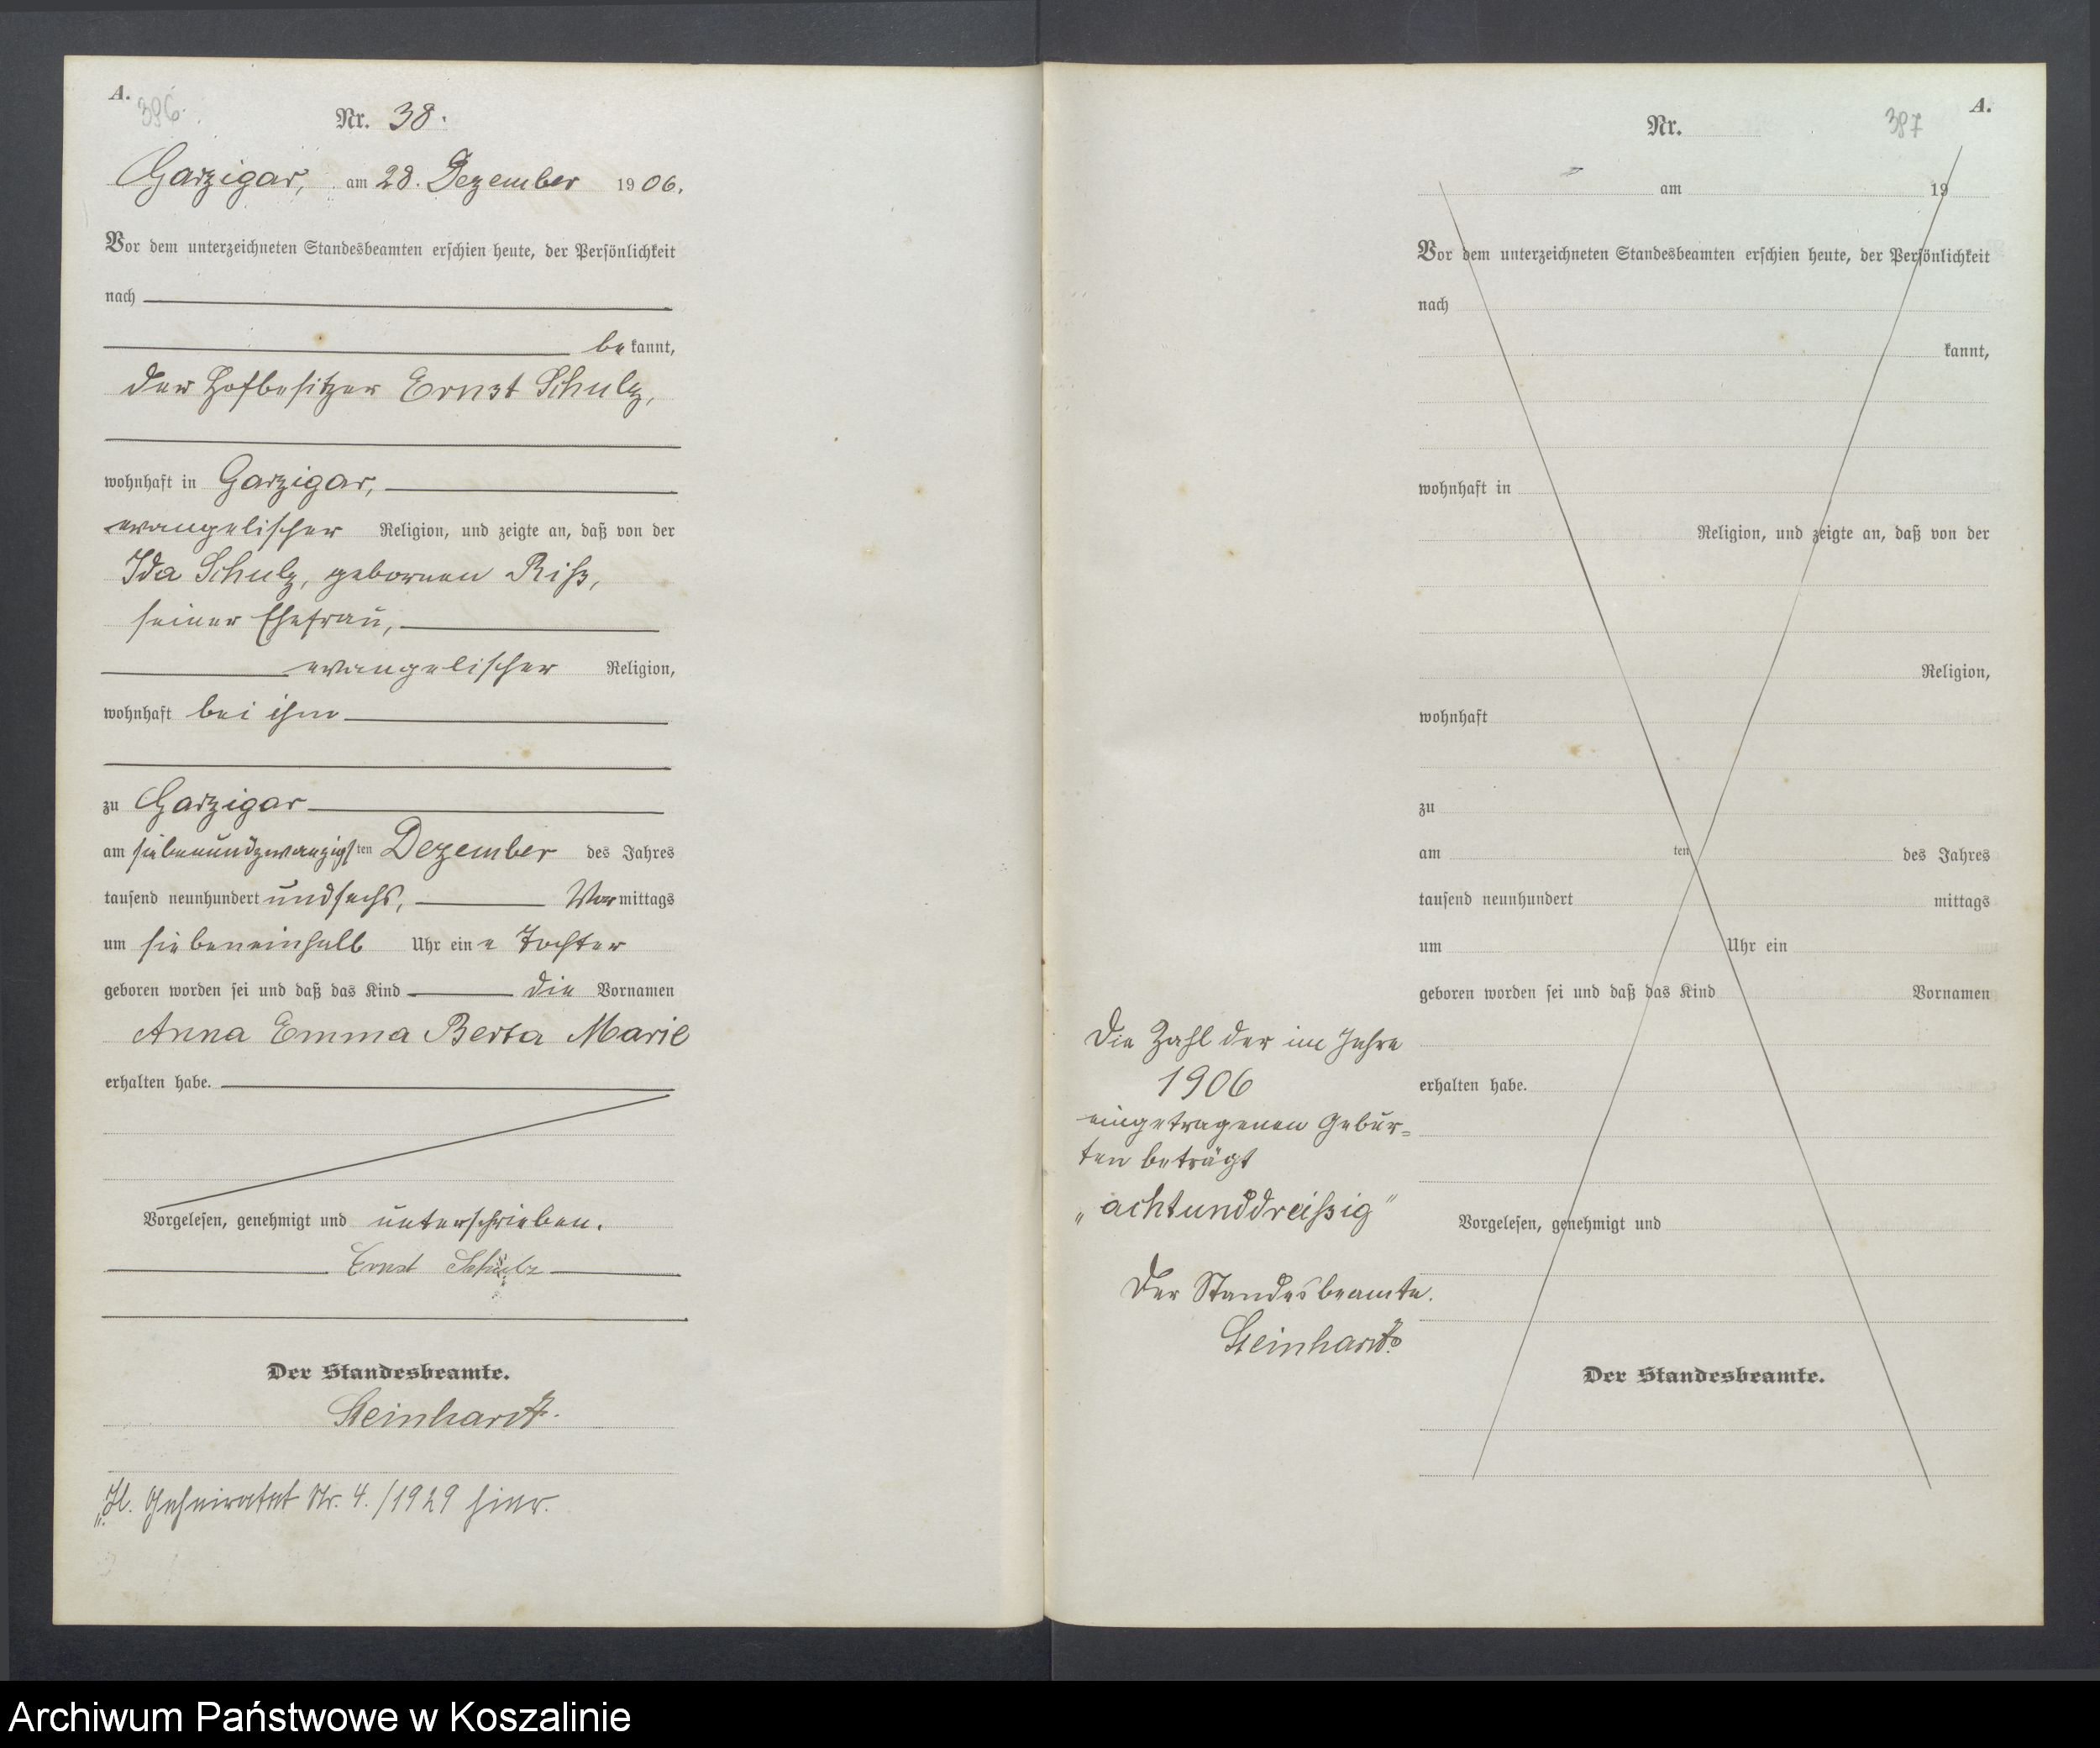 A.
386.
Nr. 38.
Garzigar, am 28. Dezember 1906.
Vor dem unterzeichneten Standesbeamten erschien heute, der Persönlichkeit
nach
bekannt,
der Hofbesitzer Ernst Schulz,
wohnhaft in Garzigar,
evangelischer Religion, und zeigte an, daß von der
Ida Schulz, geborenen Riß,
seiner Ehefrau,
evangelischer Religion,
wohnhaft bei ihm
zu Garzigar
am siebenundzwanzigsten Dezember des Jahres
tausend neunhundert undsechs, Vormittags
um siebeneinhalb Uhr eine Tochter
geboren worden sei und daß das Kind die Vornamen
Anna Emma Berta Marie
erhalten habe.
Vorgelesen, genehmigt und unterschrieben.
Ernst Schulz
Der Standesbeamte.
Steinhardt.
Geheiratet Nr. 4./1929 hier.
A.
387
Nr.
am 19
Vor dem unterzeichneten Standesbeamten erschien heute, der Persönlichkeit
nach
kannt,
wohnhaft in
Religion, und zeigte an, daß von der
Religion,
wohnhaft
zu
am ten des Jahres
tausend neunhundert mittags
um Uhr ein
geboren worden sei und daß das Kind Vornamen
erhalten habe.
Vorgelesen, genehmigt und
Der Standesbeamte.
Die Zahl der im Jahre
1906
eingetragenen Gebur-
ten beträgt
„achtunddreißig"
Der Standesbeamte.
Steinhardt.
Archiwum Państwowe w Koszalinie